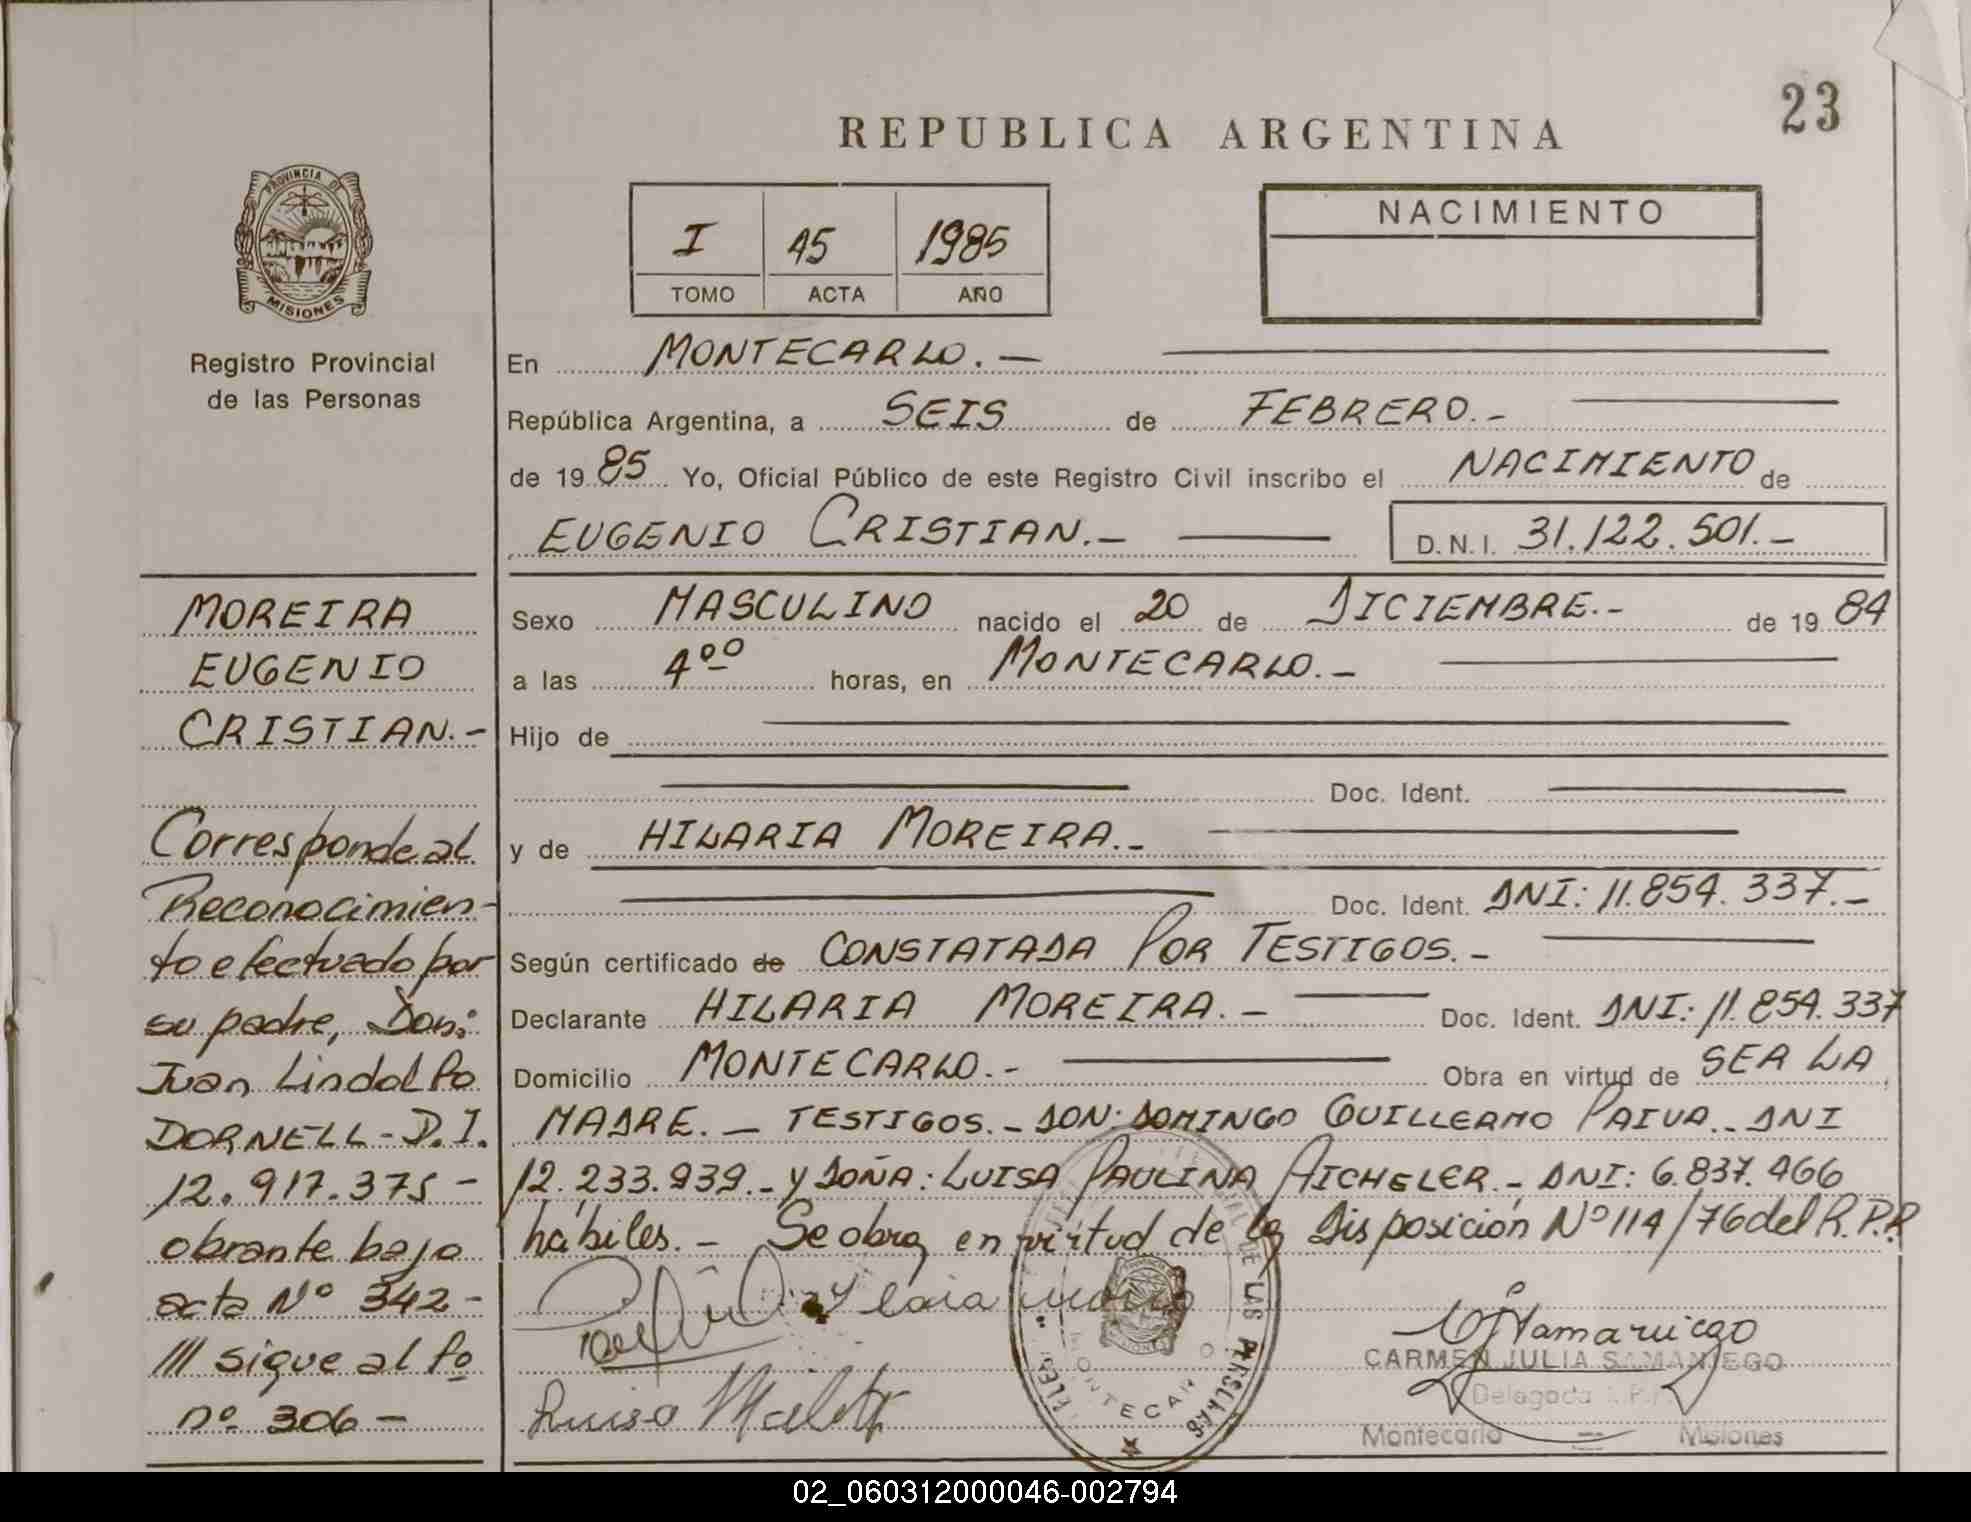 23
REPUBLICA ARGENTINA
PROVINCIA DE
MISIONES
Registro Provincial
de las Personas
I 45 1985
TOMO ACTA AÑO
NACIMIENTO
En MONTECARLO.—
República Argentina, a SEIS de FEBRERO.-
de 1985 Yo, Oficial Público de este Registro Civil inscribo el NACIMIENTO de
EUGENIO CRISTIAN.- D.N.I. 31.122.501.-
Sexo MASCULINO nacido el 20 de DICIEMBRE.- de 1984
a las 4°° horas, en MONTECARLO.-
Hijo de
Doc. Ident.
y de HILARIA MOREIRA.-
Doc. Ident. DNI: 11.854.337.-
Según certificado de CONSTATADA POR TESTIGOS.-
Declarante HILARIA MOREIRA.- Doc. Ident. DNI: 11.854.337
Domicilio MONTECARLO.- Obra en virtud de SER LA
MADRE.- TESTIGOS.- DON: DOMINGO GUILLERMO PAIVA.- DNI
12.233.939.- y DOÑA: LUISA PAULINA AICHELER.- DNI: 6.837.466
hábiles.- Se obra en virtud de la Disposición Nº 114/76 del R.P.P.
MOREIRA
EUGENIO
CRISTIAN.-
Corresponde al
Reconocimien-
to efectuado por
su padre, Don:
Juan Lindolfo
DORNELL - D.I.
12.917.375 -
obrante bajo
acta Nº 342 -
/// sigue al fo
nº 306 -
DE LAS PERSONAS
MONTECARLO
MISIONES
Luisa
CARMEN JULIA SAMANIEGO
Delegada R.P.P.
Montecarlo Misiones
02_060312000046-002794